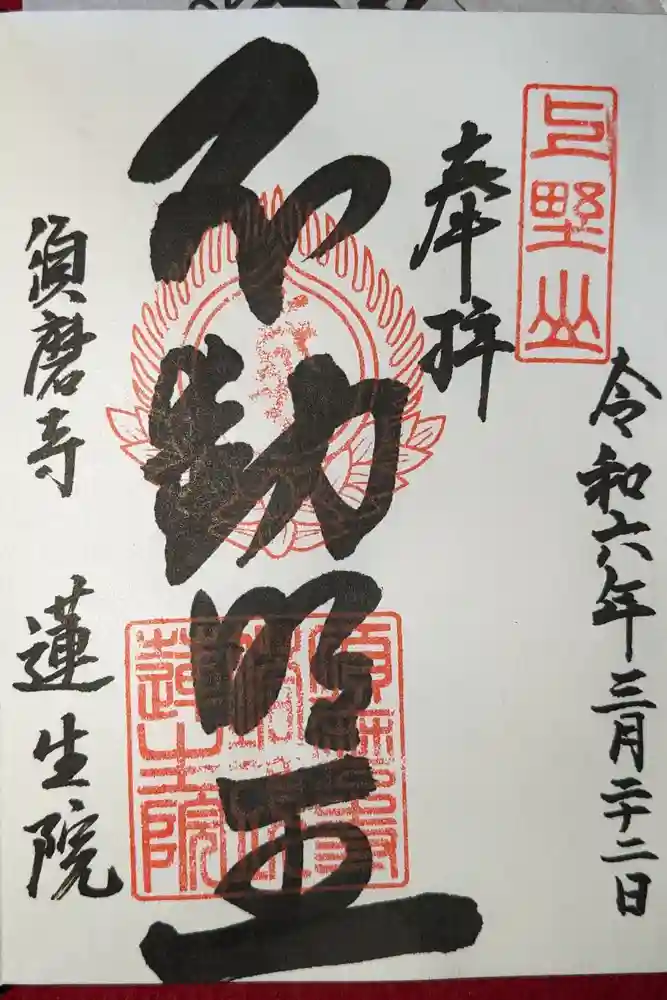 上野山
奉拝
令和六年三月二十二日
不動明王
須磨寺 蓮生院
蓮生院